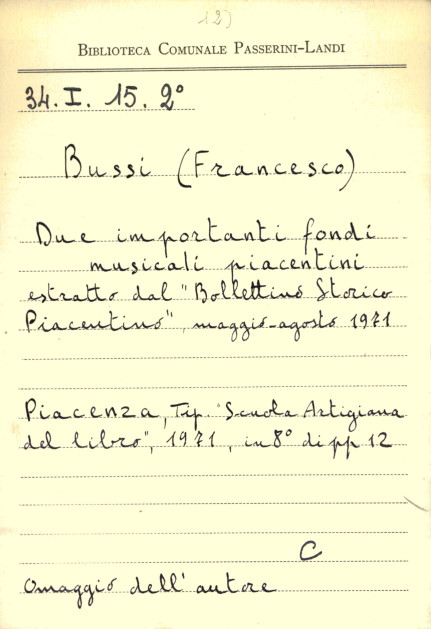 12)
BIBLIOTECA COMUNALE PASSERINI-LANDI
34. I. 15. 2°
Bussi (Francesco)
Due importanti fondi
musicali piacentini
estratto dal "Bollettino Storico
Piacentino", maggio-agosto 1971
Piacenza, Tip. "Scuola Artigiana
del libro", 1971, in 8° di pp 12
C
Omaggio dell'autore